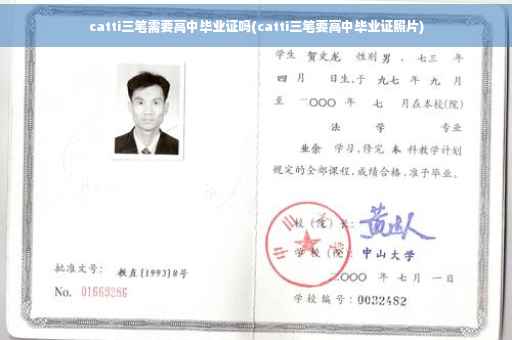 catti三笔需要高中毕业证吗(catti三笔要高中毕业证照片)
学生 贺文龙 性别 男 、七三 年
四 月 日生,于 九七 年 九 月
至 二〇〇〇 年 七 月在本校(院)
法 学 专业
业余 学习,修完 本 科教学计划
规定的全部课程,成绩合格,准予毕业。
校 (院) 长:
学 校 (院) 中山大学
二〇〇〇 年 七 月 一 日
学校编号:0032482
批准文号: 教直[1993]8号
No. 01669286
中山大学